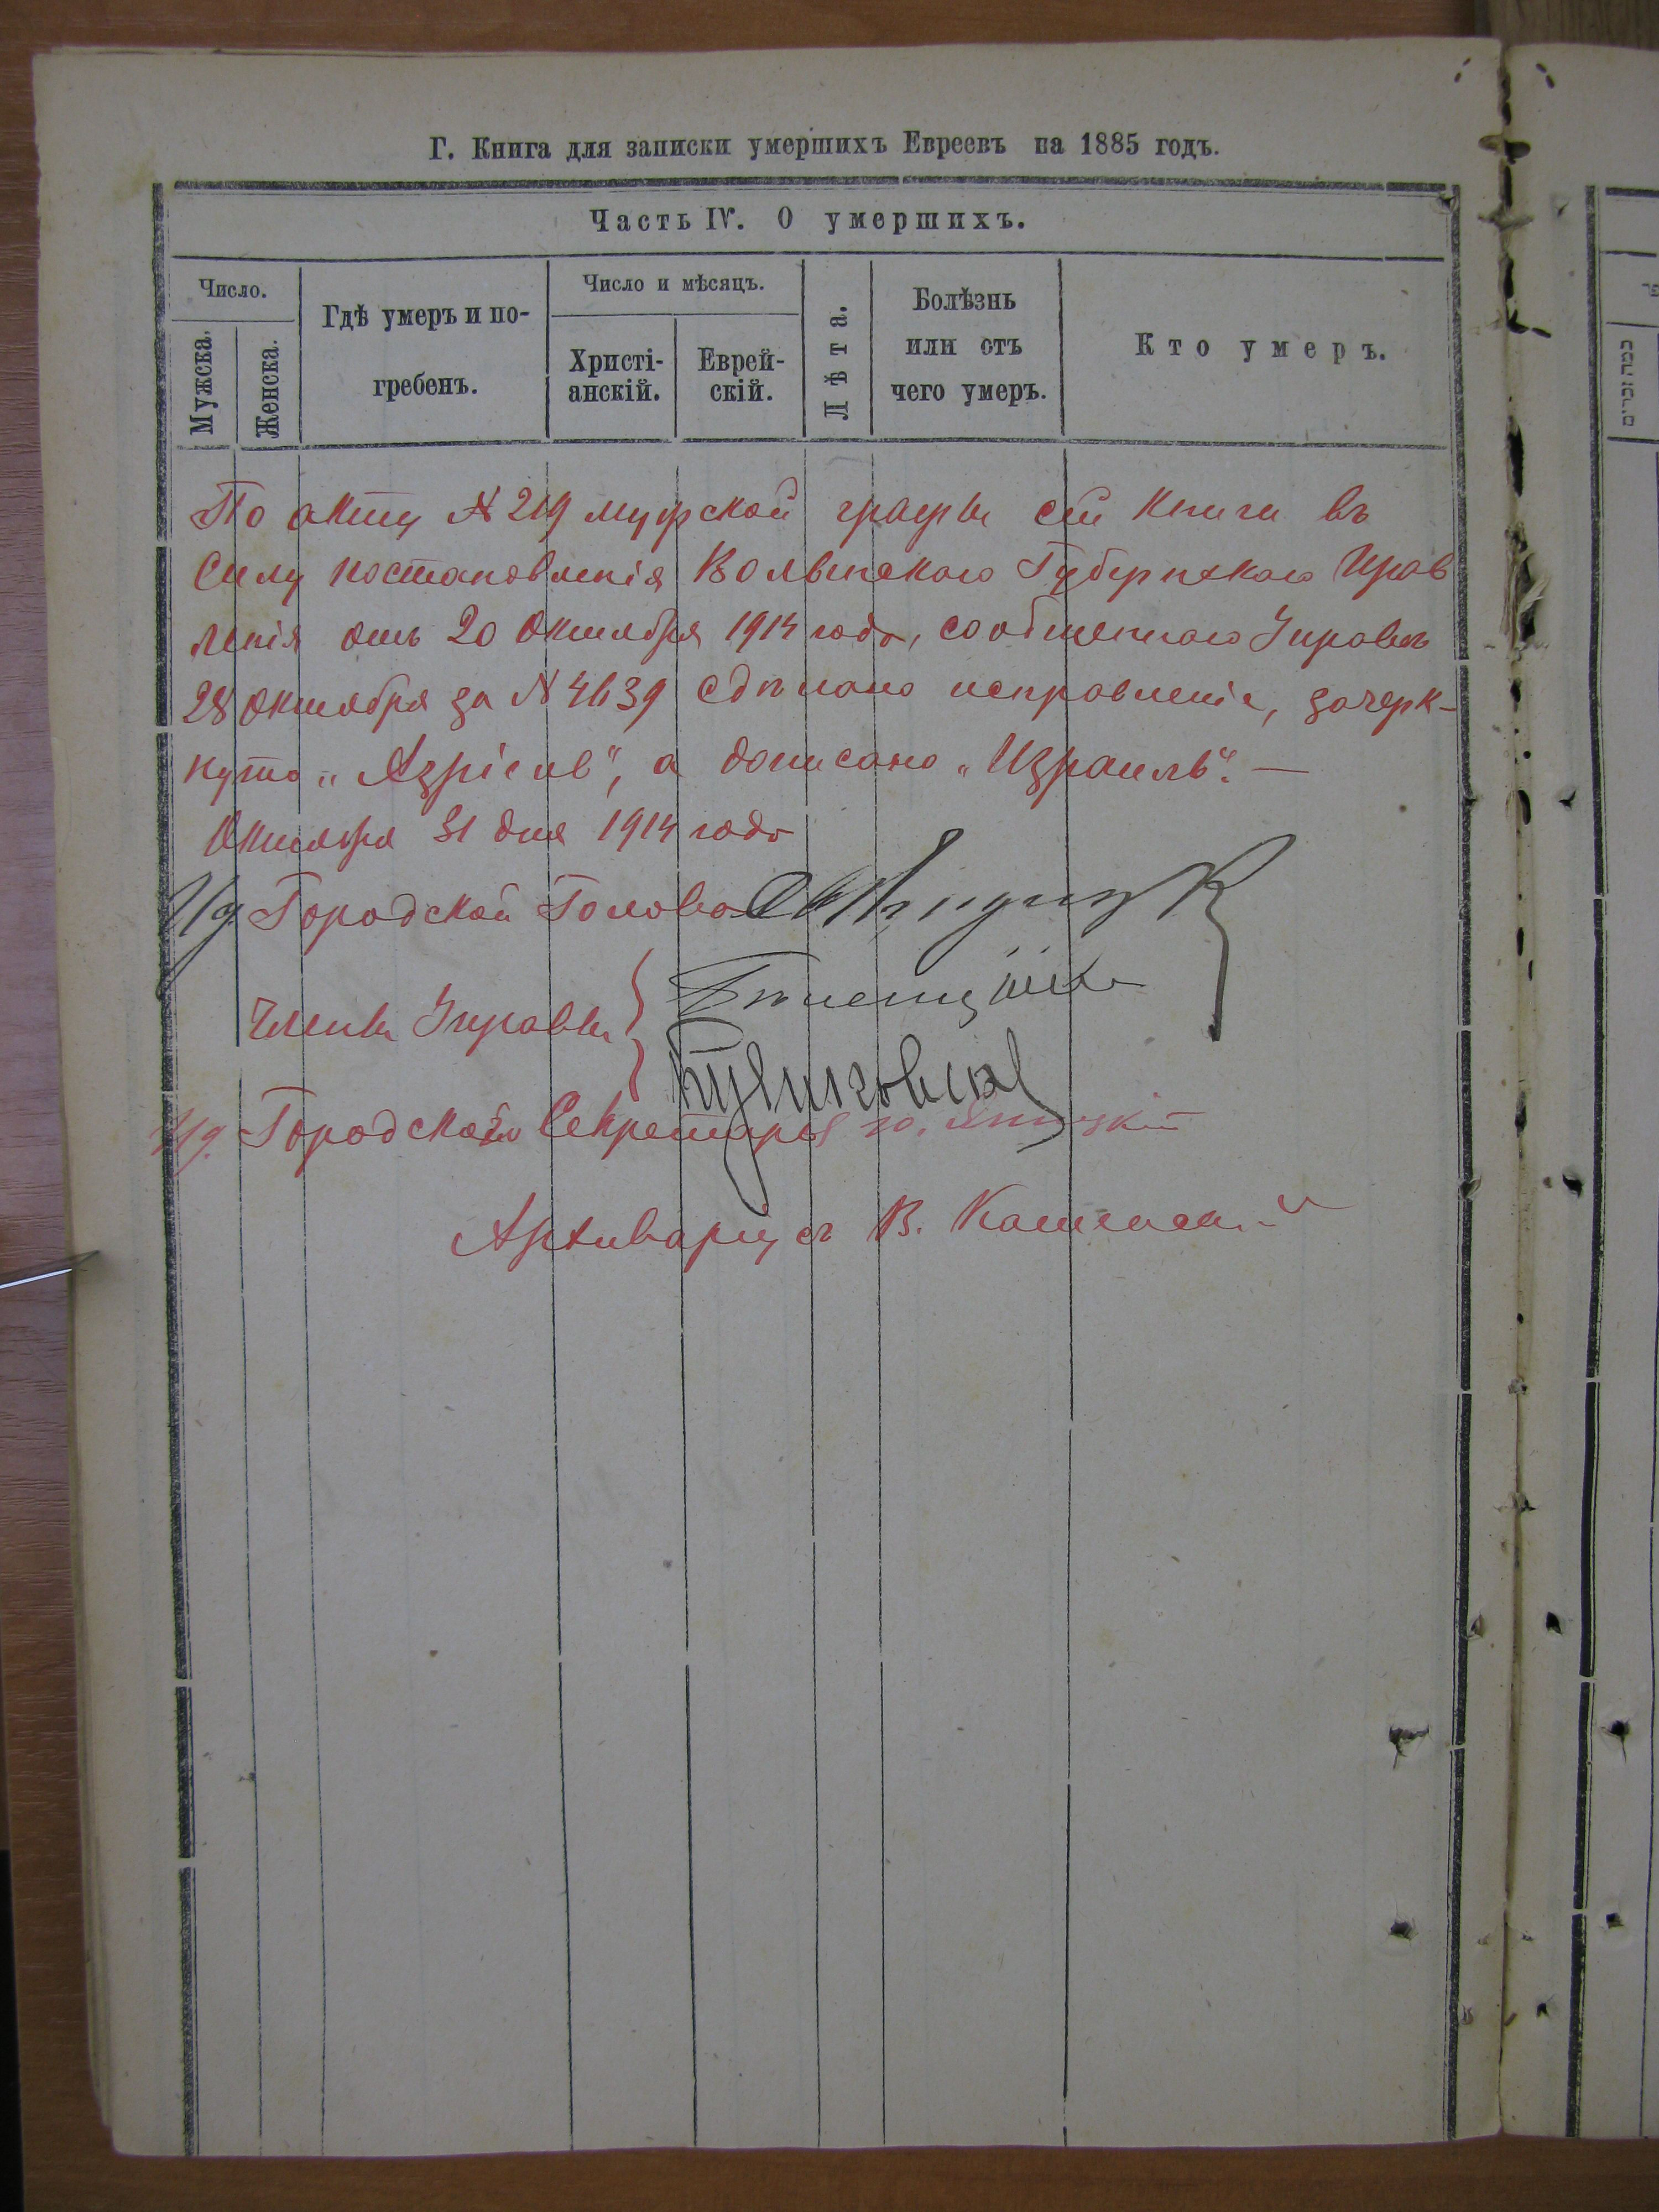 Г. Книга для записки умершихъ Евреевъ на 1885 годъ.
Часть IV. О умершихъ.
Число.
Мужска.
Женска.
Гдѣ умеръ и по-
гребенъ.
Число и мѣсяцъ.
Христі-
анскій.
Еврей-
скій.
Лѣта.
Болѣзнь
или отъ
чего умеръ.
Кто умеръ.
По акту № 219 мужской графы сей книги въ
силу постановленія Волынскаго Губернскаго Прав
ленія отъ 20 Октября 1914 года, сообщеннаго Управѣ
28 Октября за № 4639 сдѣлано исправленіе, зачерк-
нуто „Азріель", а дописано „Израиль". —
Октября 31 дня 1914 года
И д Городской Голова
Члены Управы
И д. Городской Секретарь
Архиваріусъ В.